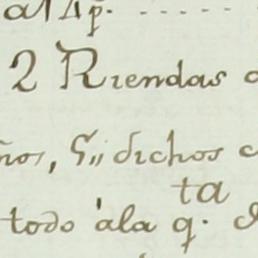 2 Riendas
ños, 5,, dichos
ta
todo àla q.